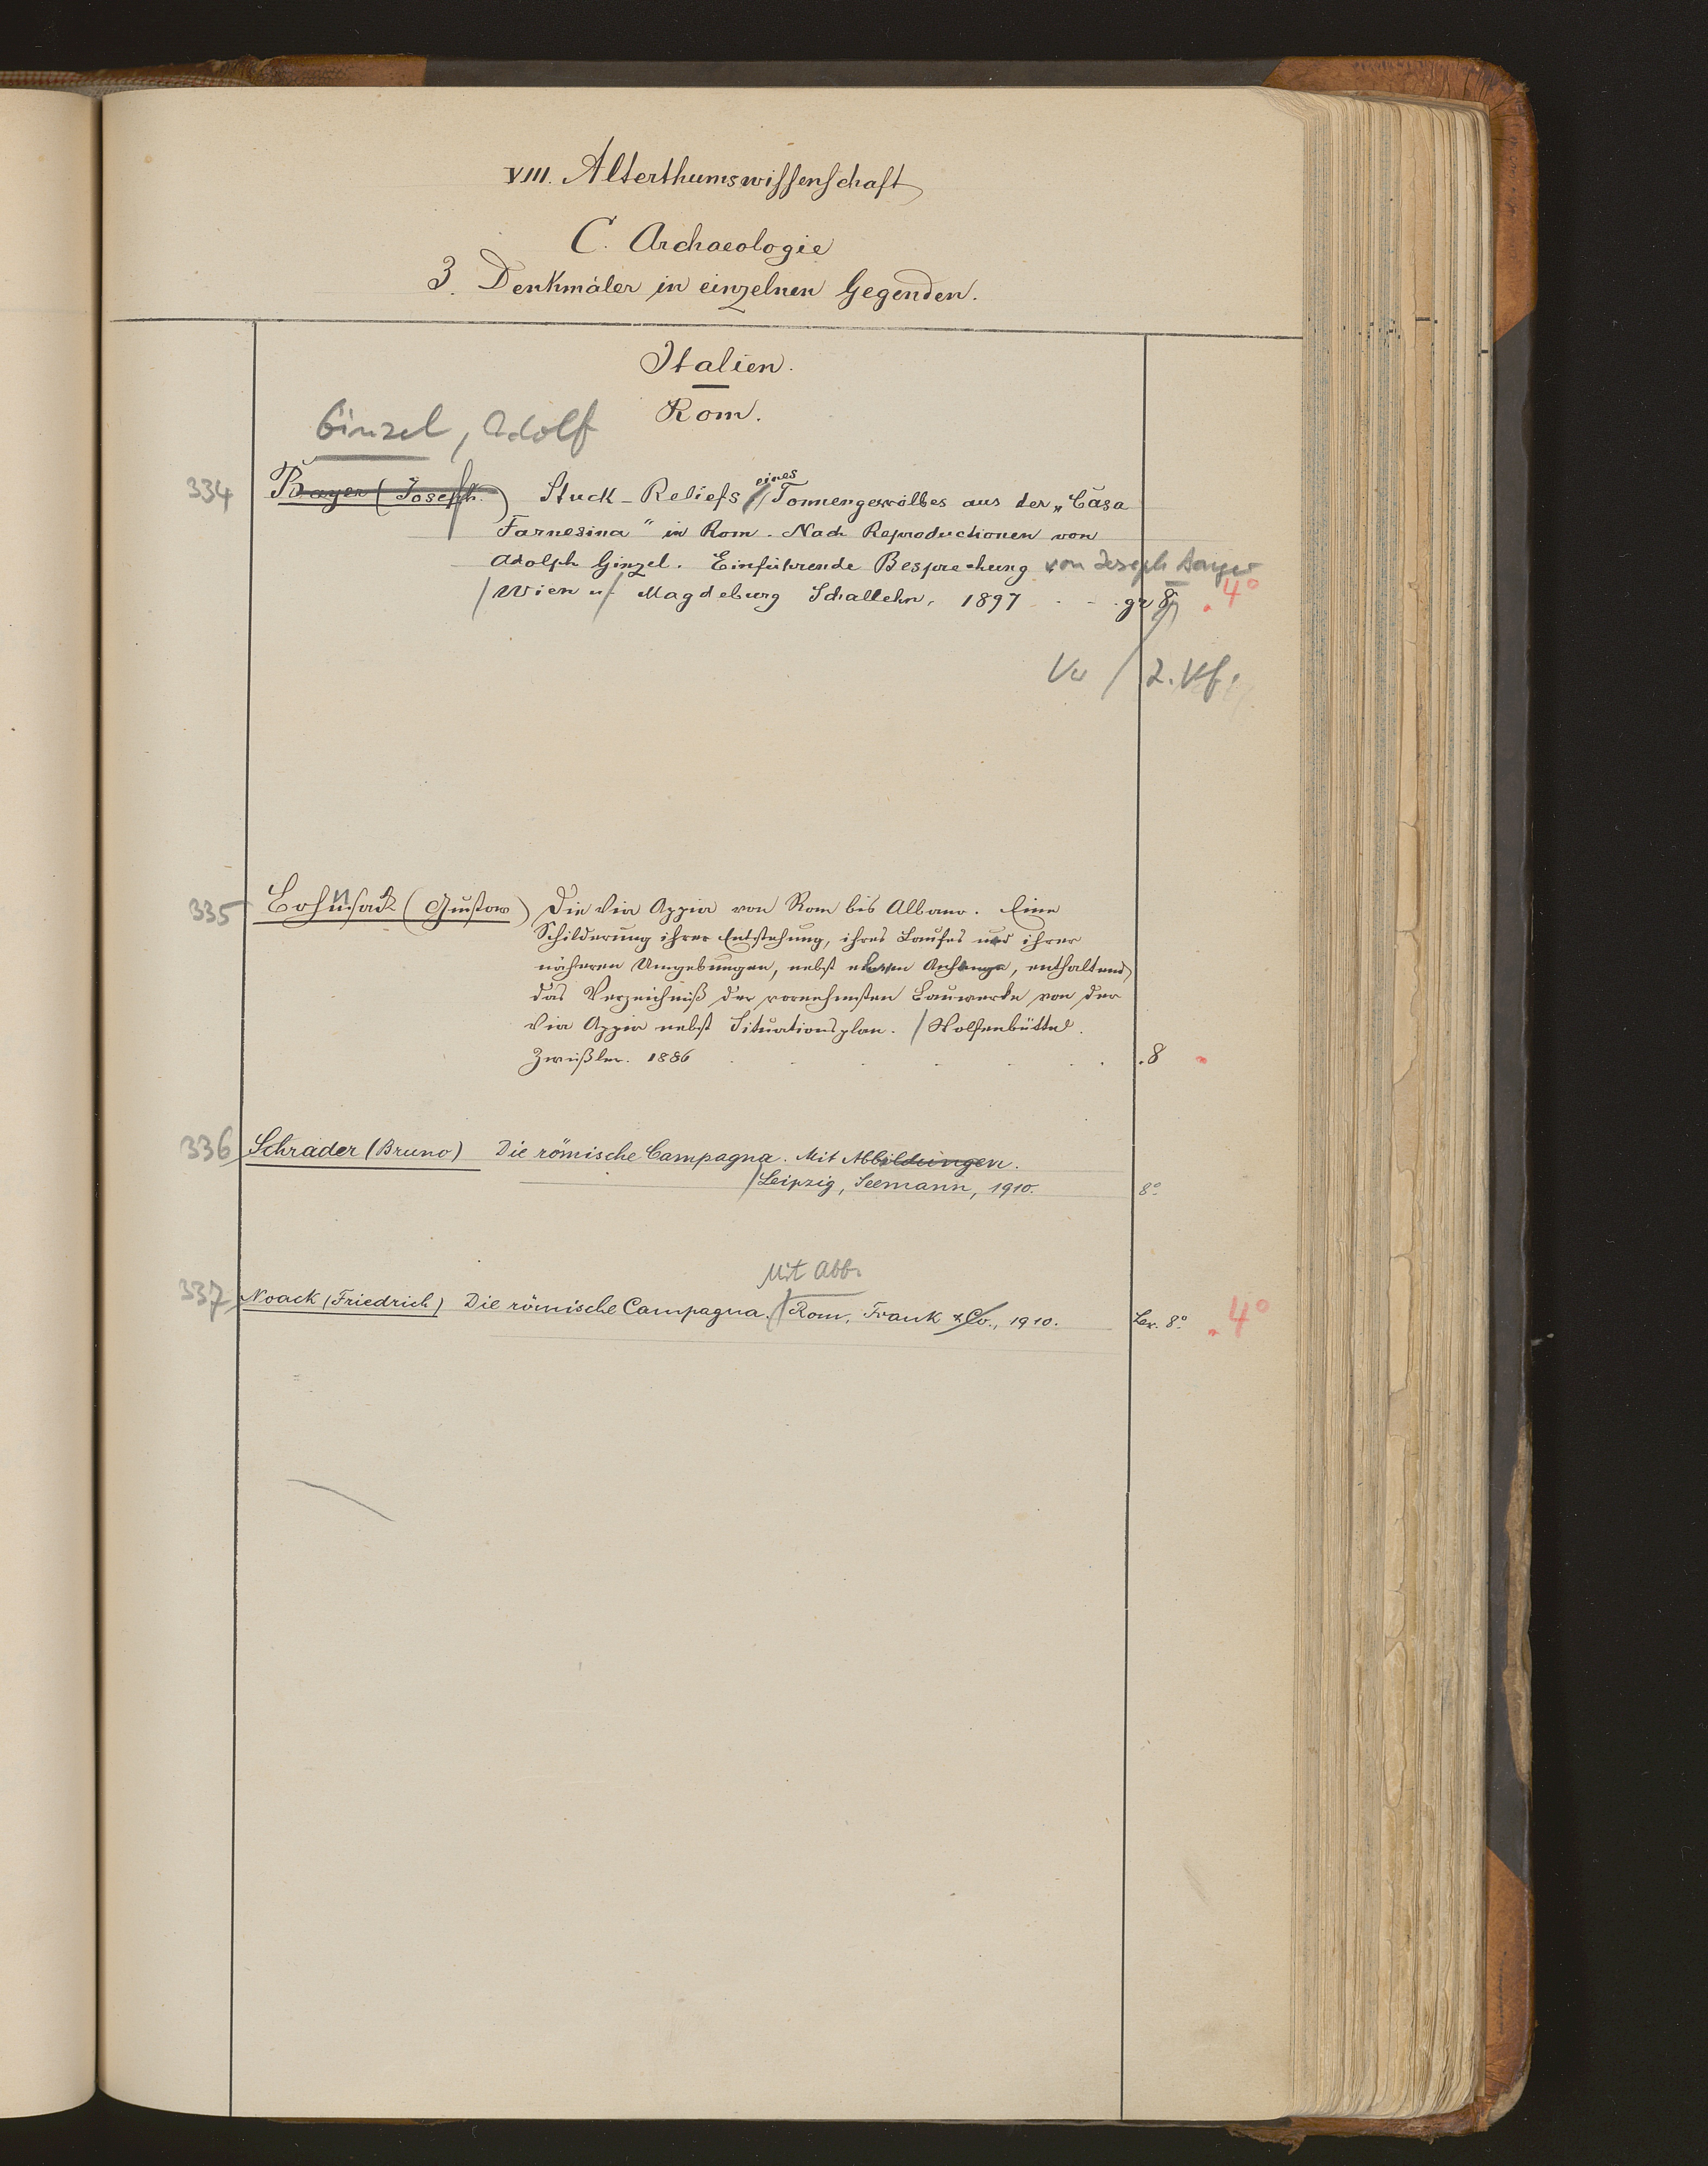 VIII. Alterthumswissenschaft
C. Archaeologie
3. Denkmäler in einzelnen Gegenden.
Italien.
Rom.
Ginzel, Adolf
334 Bayer (Joseph.) Stuck-Reliefs eines Tonnengewölbes aus der „Casa
Farnesina“ in Rom. Nach Reproductionen von
Adolph Ginzel. Einführende Besprechung von Joseph Bayer
/ Wien u/ Magdeburg Schallehn, 1897 . . . gr 8 . 4°
/ 2. Vf.
335 Bohnsack (Gustav) Die Via Appia von Rom bis Albano. Eine
Schilderung ihrer Entstehung, ihres Laufes und ihrer
näheren Umgebungen, nebst einem Anhange, enthaltend
das Verzeichniß der vornehmsten Bauwerke von der
Via Appia nebst Situationsplan. / Wolfenbüttel.
Zwißler. 1886 . . . . . . . 8
336 Schrader (Bruno) Die römische Campagna. Mit Abbildungen.
/ Leipzig, Seemann, 1910. 8°.
Mit Abb.
337 Noack (Friedrich) Die römische Campagna. / Rom, Frank & Co., 1910. Lex. 8°. . 4°